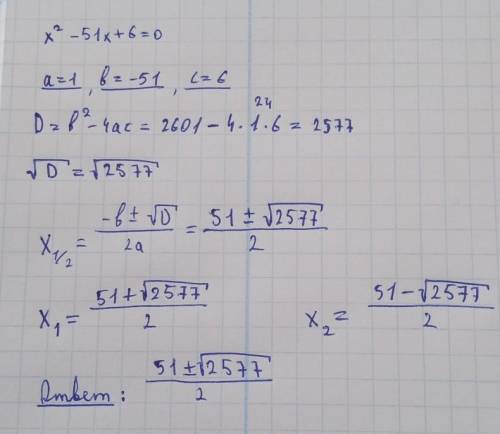 x² - 51x + 6 = 0
a = 1, b = -51, c = 6
24
D = b² - 4ac = 2601 - 4 · 1 · 6 = 2577
√D = √2577
x₁/₂ = (-b ± √D)/2a = (51 ± √2577)/2
x₁ = (51 + √2577)/2 x₂ = (51 - √2577)/2
Ответ: (51 ± √2577)/2